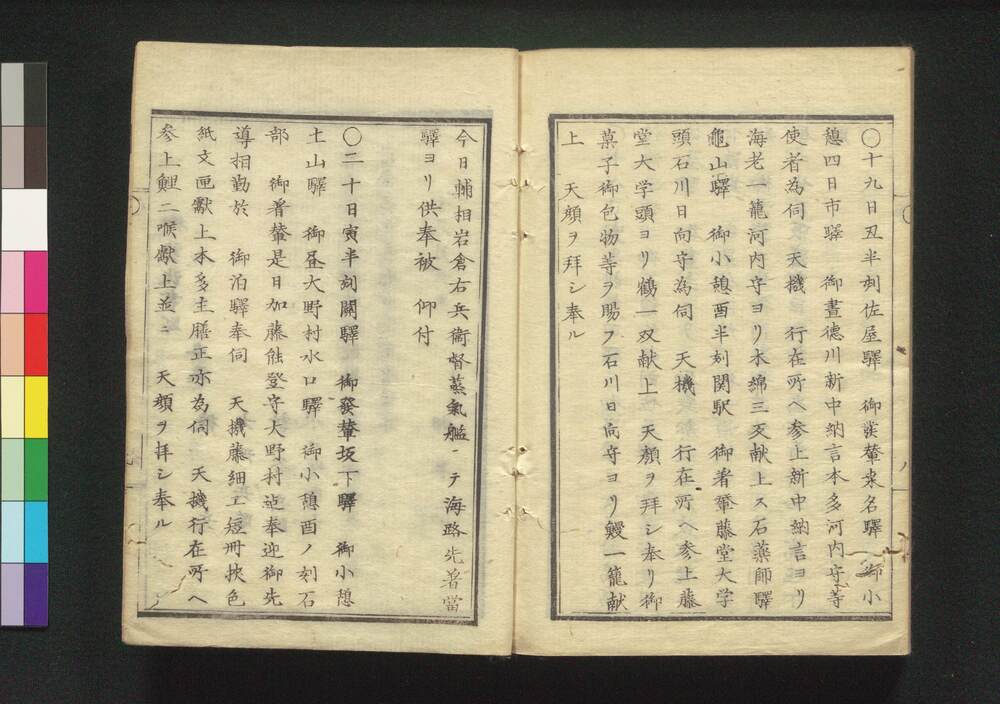 〇十九日丑半刻佐屋驛　御發輦桒名驛　御小
憩四日市驛　御晝德川新中納言本多河内守等
使者為伺　天機　行在所ヘ参上新中納言ヨリ
海老一籠河内守ヨリ木綿三疋献上ス石薬師驛
龜山驛　御小憩酉半刻関駅　御着輦藤堂大学
頭石川日向守為伺　天機　行在所ヘ参上藤
堂大学頭ヨリ鶴一双献上　天顔ヲ拜シ奉リ御
菓子御包物等ヲ賜フ石川日向守ヨリ鰻一籠献
上　天顔ヲ拜シ奉ル
今日輔相岩倉右兵衞督蒸氣艦ニテ海路先着當
驛ヨリ供奉被　仰付
〇二十日寅半刻關驛　御發輦坂下驛　御小憩
土山驛　御昼大野村水口驛　御小憩酉ノ刻石
部　御着輦是日加藤能登守大野村迠奉迎御先
導相勤於　御泊驛奉伺　天機藤細工短冊挾色
紙文匣獻上本多主膳正亦為伺　天機行在所ヘ
参上鯉二喉獻上並ニ　天顔ヲ拜シ奉ル